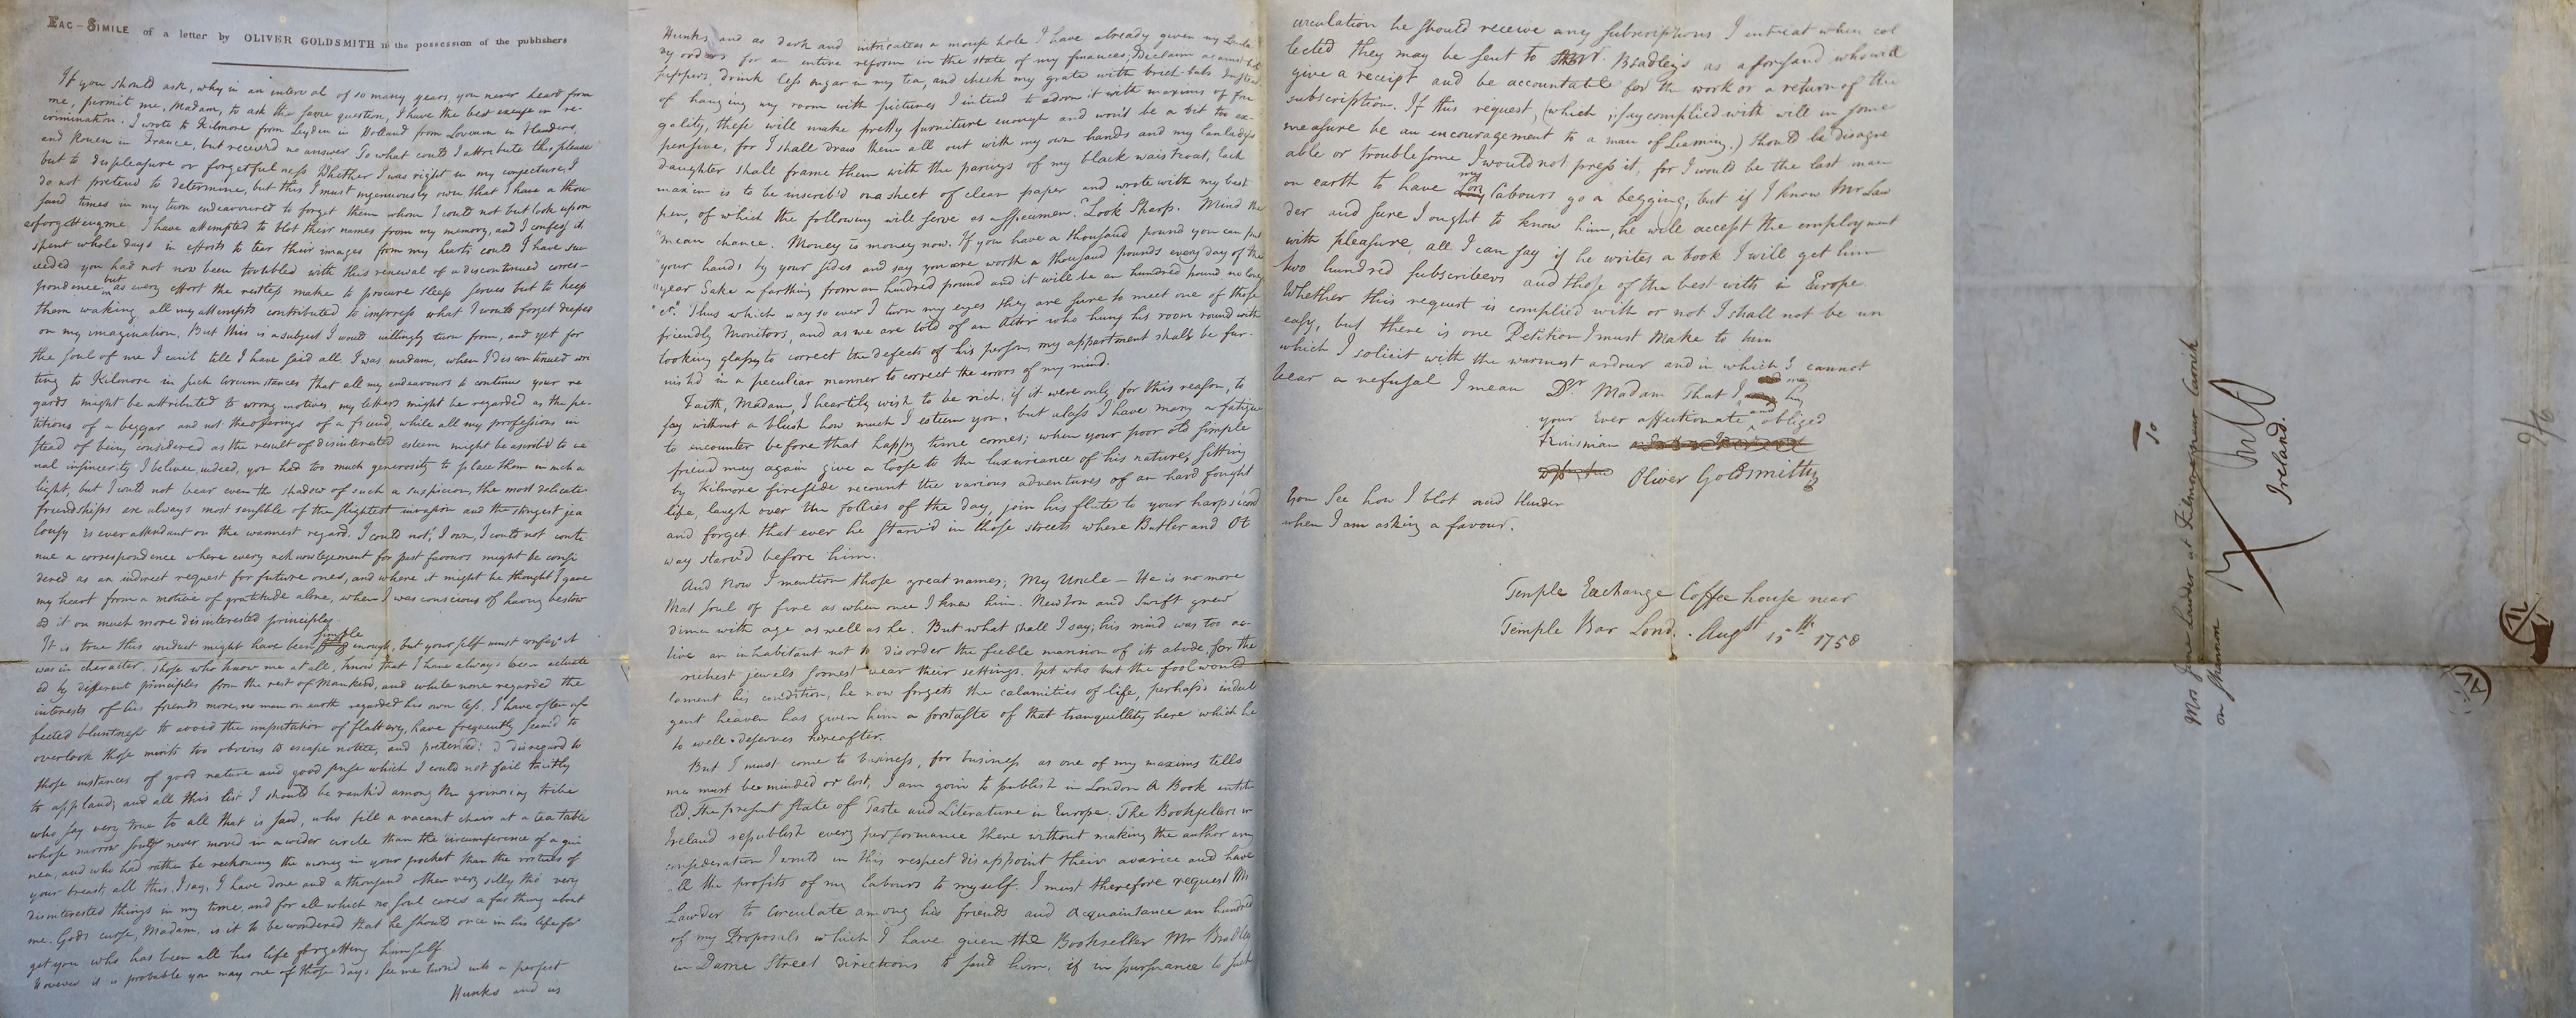 FAC-SIMILE of a letter by OLIVER GOLDSMITH in the possession of the publishers
If you should ask, why in an interval of so many years, you never heard from
me, permit me, Madam, to ask the same question, I have the best excuse in re-
crimination. I wrote to Kilmore from Leyden in Holland from Lovain in Flanders,
and Rouen in France, but received no answer. To what could I attribute this please
but to displeasure or forgetfulness. Whether I was right in my conjecture, I
do not pretend to determine, but this I must ingenuously own that I have a thou
sand times in my turn endeavoured to forget them whom I could not but look upon
as forgetting me. I have attempted to blot their names from my memory, and I confess it
spent whole days in efforts to tear their images from my heart; could I have suc
ceeded you had not now been troubled with this renewal of a discontinued corres-
pondence but as every effort the restless make to procure sleep serves but to keep
them waking, all my attempts contributed to impress what I would forget deeper
on my imagination. But this is a subject I would willingly turn from, and yet for
the soul of me I can't till I have said all. I was, madam, when I discontinued wri
ting to Kilmore in such circumstances that all my endeavours to continue your re
gards might be attributed to wrong motives, my letters might be regarded as the pe-
titions of a beggar and not the offerings of a friend, while all my professions in
stead of being considered as the result of disinterested esteem might be ascribed to ve
nal insincerity. I believe, indeed, you had too much generosity to place them in such a
light, but I could not bear even the shadow of such a suspicion, the most delicate
friendships are always most sensible of the slightest invasion and the strongest jea
lousy is ever attendant on the warmest regard. I could not, I own, I could not conti
nue a correspondence where every acknowlegement for past favours might be consi
dered as an indirect request for future ones, and where it might be thought I gave
my heart from a motive of gratitude alone, when I was conscious of having bestow
ed it on much more disinterested principles.
It is true this conduct might have been simple enough, but yourself must confess it
was in character. Those who know me at all, know that I have always been actuate
ed by different principles from the rest of Mankind, and while none regarded the
interests of his friends more, no man on earth regarded his own less. I have often af
fected bluntness to avoid the imputation of flattery, have frequently seem'd to
overlook those merits too obvious to escape notice, and pretended disregard to
those instances of good nature and good sense which I could not fail tacitly
to applaud; and all this lest I should be rank'd among the grinning tribe
who say very true to all that is said, who fill a vacant chair at a tea table
whose narrow souls never moved in a wider circle than the circumference of a gui
nea, and who had rather be reckoning the money in your pocket than the virtues of
your breast; all this, I say, I have done and a thousand other very silly tho' very
disinterested things in my time, and for all which no soul cares a farthing about
me. Gods curse, Madam, is it to be wondered that he should once in his life for
get you who has been all his life forgetting himself
However it is probable you may one of those days see me turn'd into a perfect
Hunks and as
Hunks and as dark and intricate as a mouse hole. I have already given my Landla
dy orders for an entire reform in the state of my finances; I declaim against hot
suppers, drink less sugar in my tea, and check my grate with brick-bats. Instead
of hanging my room with pictures I intend to adorn it with maxims of fru
gality, these will make pretty furniture enough and won't be a bit too ex-
pensive; for I shall draw them all out with my own hands and my landladys
daughter shall frame them with the parings of my black waistcoat; Each
maxim is to be inscrib'd on a sheet of clean paper and wrote with my best
pen, of which the following will serve as a specimen. "Look Sharp. Mind the
"mean chance. Money is money now. If you have a thousand pound you can put
"your hands by your sides and say you are worth a thousand pounds every day of the
"year. Take a farthing from an hundred pound and it will be an hundred pound no longer
"&c". Thus which way so ever I turn my eyes they are sure to meet one of those
friendly Monitors, and as we are told of an Actor who hung his room round with
looking glasses to correct the defects of his person, my appartment shall be fur-
nish'd in a peculiar manner to correct the errors of my mind.
Faith, Madam, I heartily wish to be rich, if it were only for this reason, to
say without a blush how much I esteem you, but alass I have many a fatigue
to encounter before that happy time comes; when your poor old simple
friend may again give a loose to the luxuriance of his nature, sitting
by Kilmore fireside recount the various adventures of an hard fought
life, laugh over the follies of the day, join his flute to your harpsicord
and forget that ever he starv'd in those streets where Butler and Ot
way starv'd before him.
And Now I mention those great names; My Uncle — He is no more
that soul of fire as when once I knew him. Newton and Swift grew
dim with age as well as he. But what shall I say; his mind was too ac-
tive an inhabitant not to disorder the feeble mansion of its abode, for the
richest jewels soonest wear their settings. Yet who but the fool would
lament his condition, he now forgets the calamities of life, perhaps indul
gent heaven has given him a foretaste of that tranquillity here which he
so well deserves hereafter.
But I must come to business, for business as one of my maxims tells
me must be minded or lost, I am goin to publish in London A Book entit
led, The present state of Taste and Literature in Europe. The Booksellers in
Ireland republish every performance there without making the author any
consideration I would in this respect disappoint their avarice and have
all the profits of my labours to myself. I must therefore request Mr
Lawder to circulate among his friends and Acquaintance an hundred
of my Proposals which I have given the Bookseller Mr Bradley
in Dame Street directions to send him; if in pursuance to such
circulation he should receive any subscriptions I intreat when col
lected they may be sent to Mr. Bradley's as aforesaid who will
give a receipt and be accountable for the work or a return of the
subscription. If this request, (which if say complied with will in some
measure be an encouragement to a man of Learning.) should be disagre
able or troublesome I would not press it, for I would be the last man
on earth to have my labours go a begging; but if I know Mr Law
der and sure I ought to know him, he will accept the employment
with pleasure, all I can say if he writes a book I will get him
two hundred subscribers and those of the best wits in Europe.
Whether this request is complied with or not I shall not be un
easy, but there is one Petition I must make to him
which I solicit with the warmest ardour and in which I cannot
bear a refusal I mean Dr. Madam That I may
your Ever affectionate and obliged
Kinsman
Oliver Goldsmith
You See how I blot and blunder
when I am asking a favour.
Temple Exchange Coffee house near
Temple Bar Lond. Augst 15th 1758
To
Mrs Jane Lawder at Kilmore near Carrick
on Shannon
Ireland.